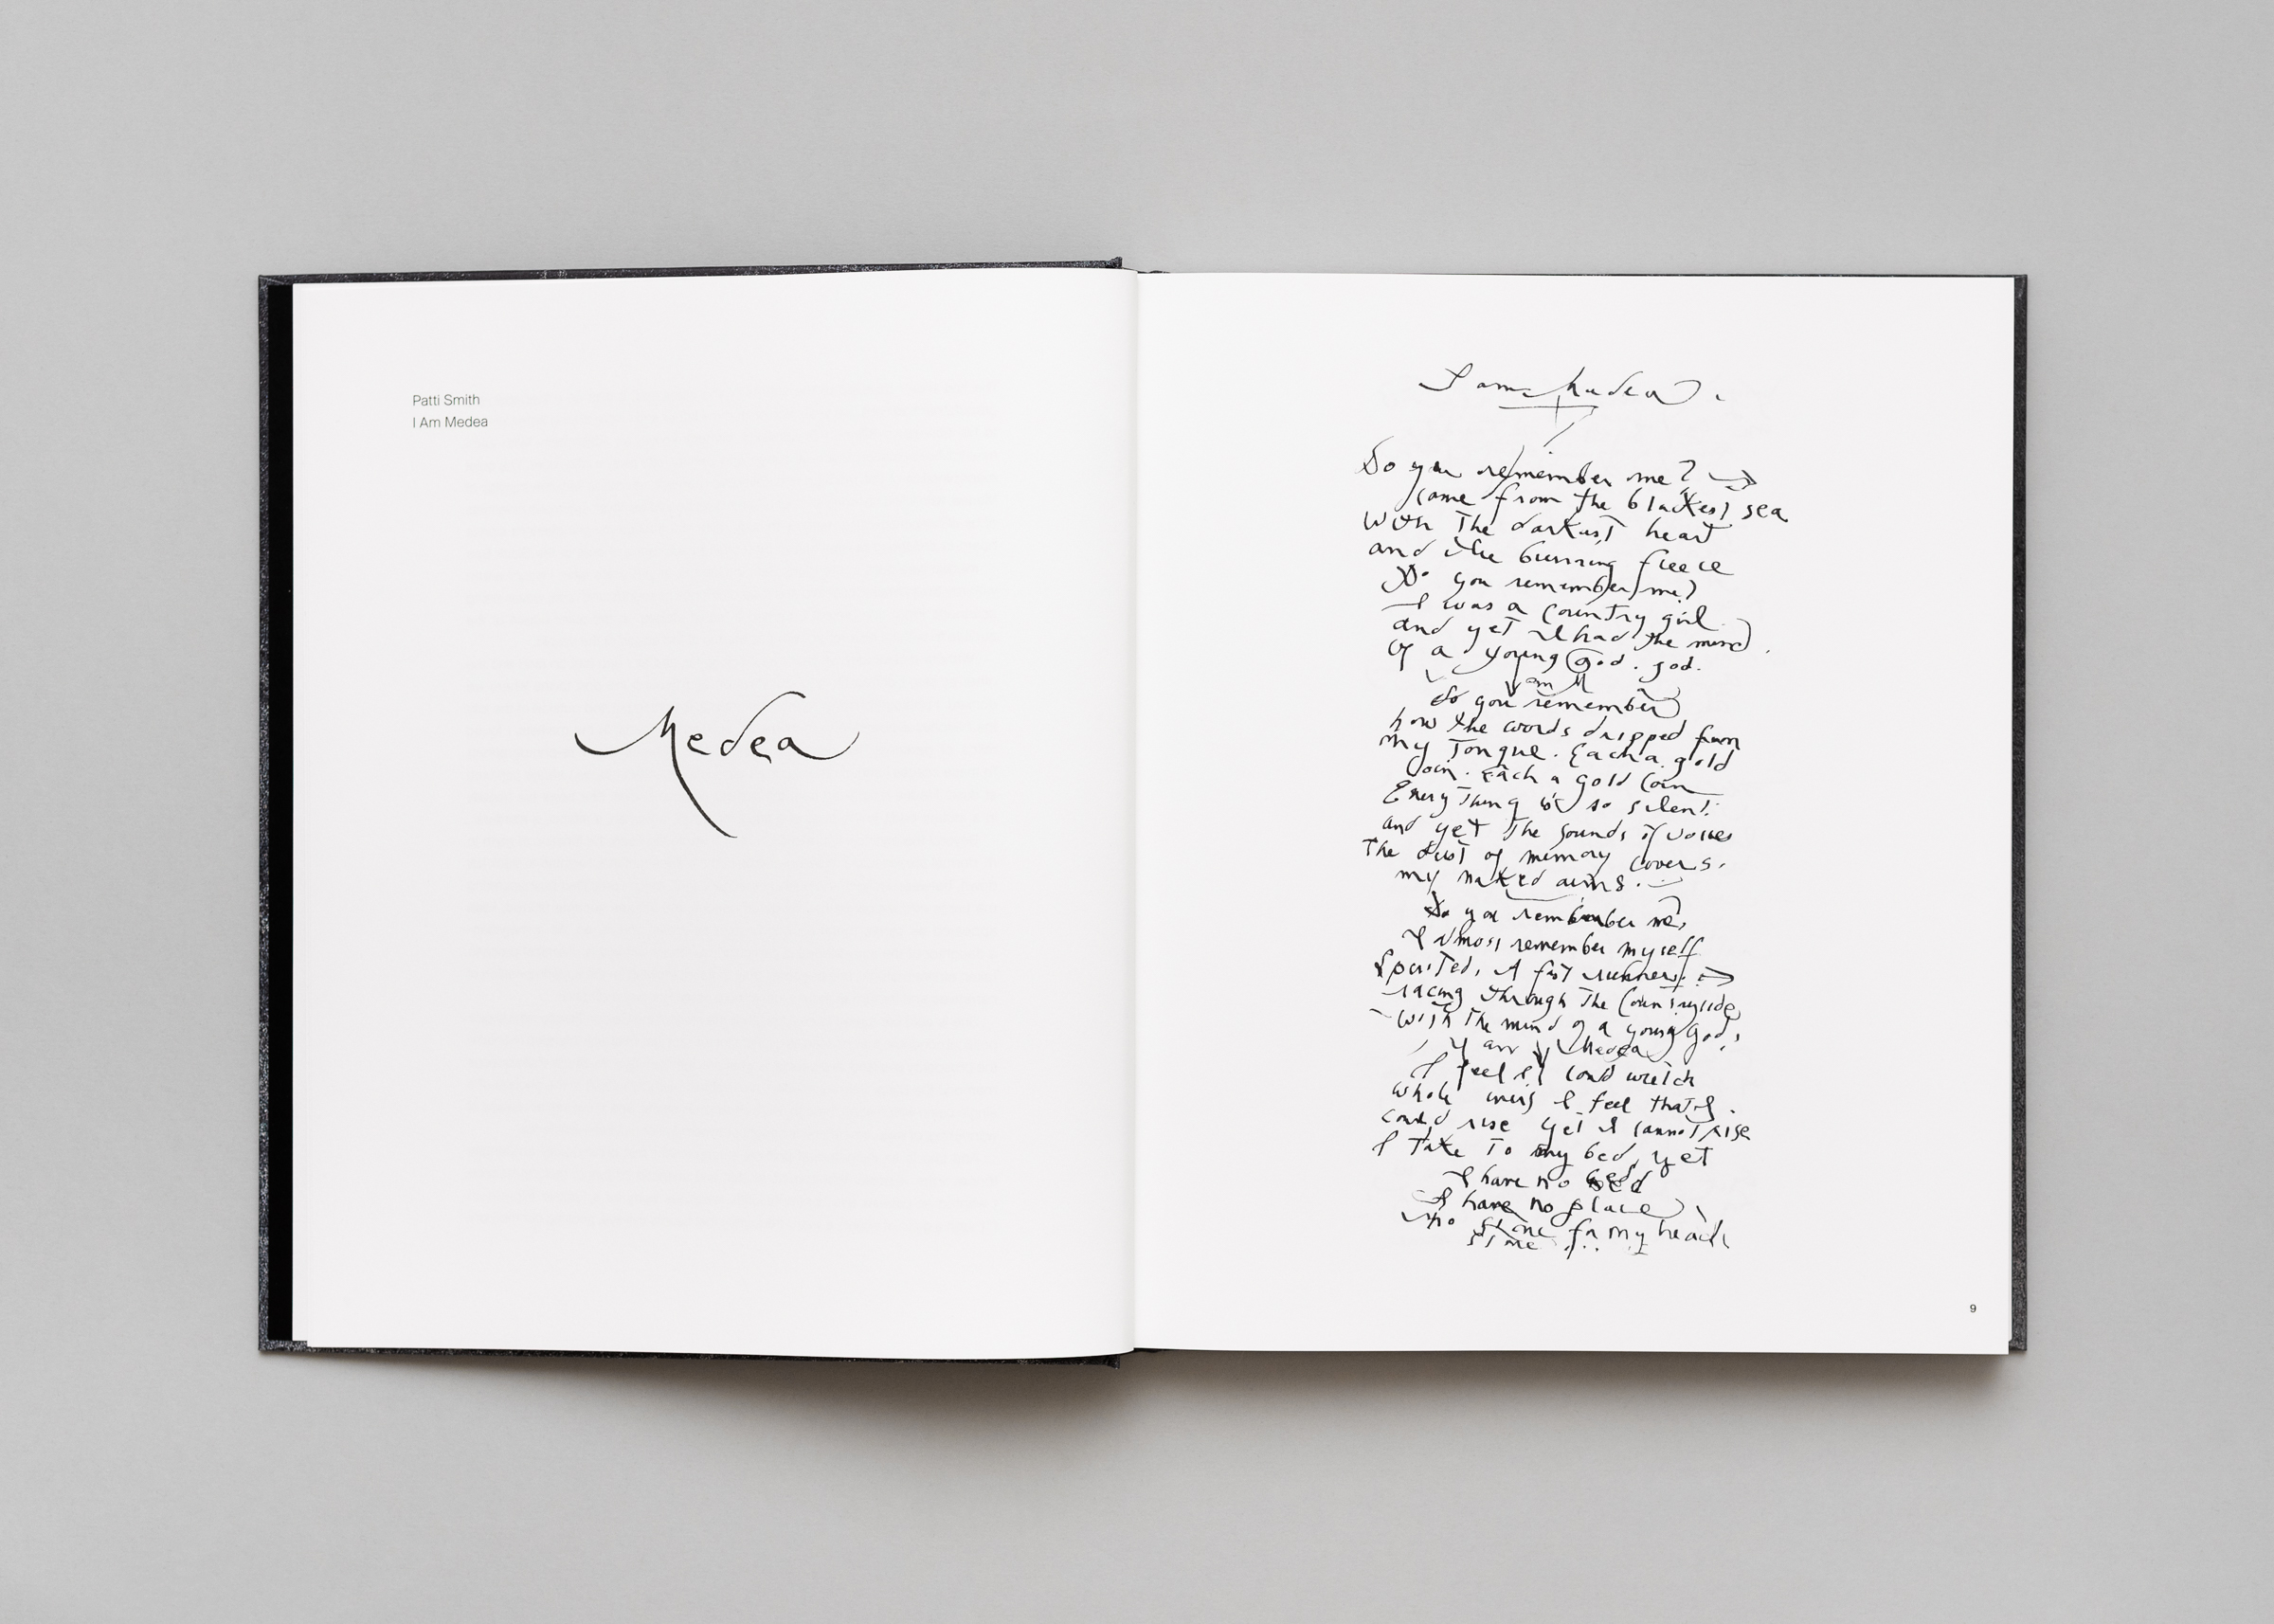 Patti Smith
I Am Medea
Medea
I am Medea.
Do you remember me?
come from the blackest sea
with the darkest heart
and the burning fleece
Do you remember me?
I was a country girl
and yet I had the mind
of a young god. god.
I am M
do you remember
how the words dripped from
my tongue. Each a gold
coin. Each a gold coin
Everything is so silent
and yet the sounds of voices
The dust of memory covers
my naked arms.
Do you remember me,
I almost remember myself
Spirited, A fast runner
racing through the countryside
with the mind of a young god,
I am Medea
I feel I could wretch
whole I feel that I
could rise yet I cannot rise
I take to my bed, yet
I have no bed
I have no place
no stone for my head
stone
9